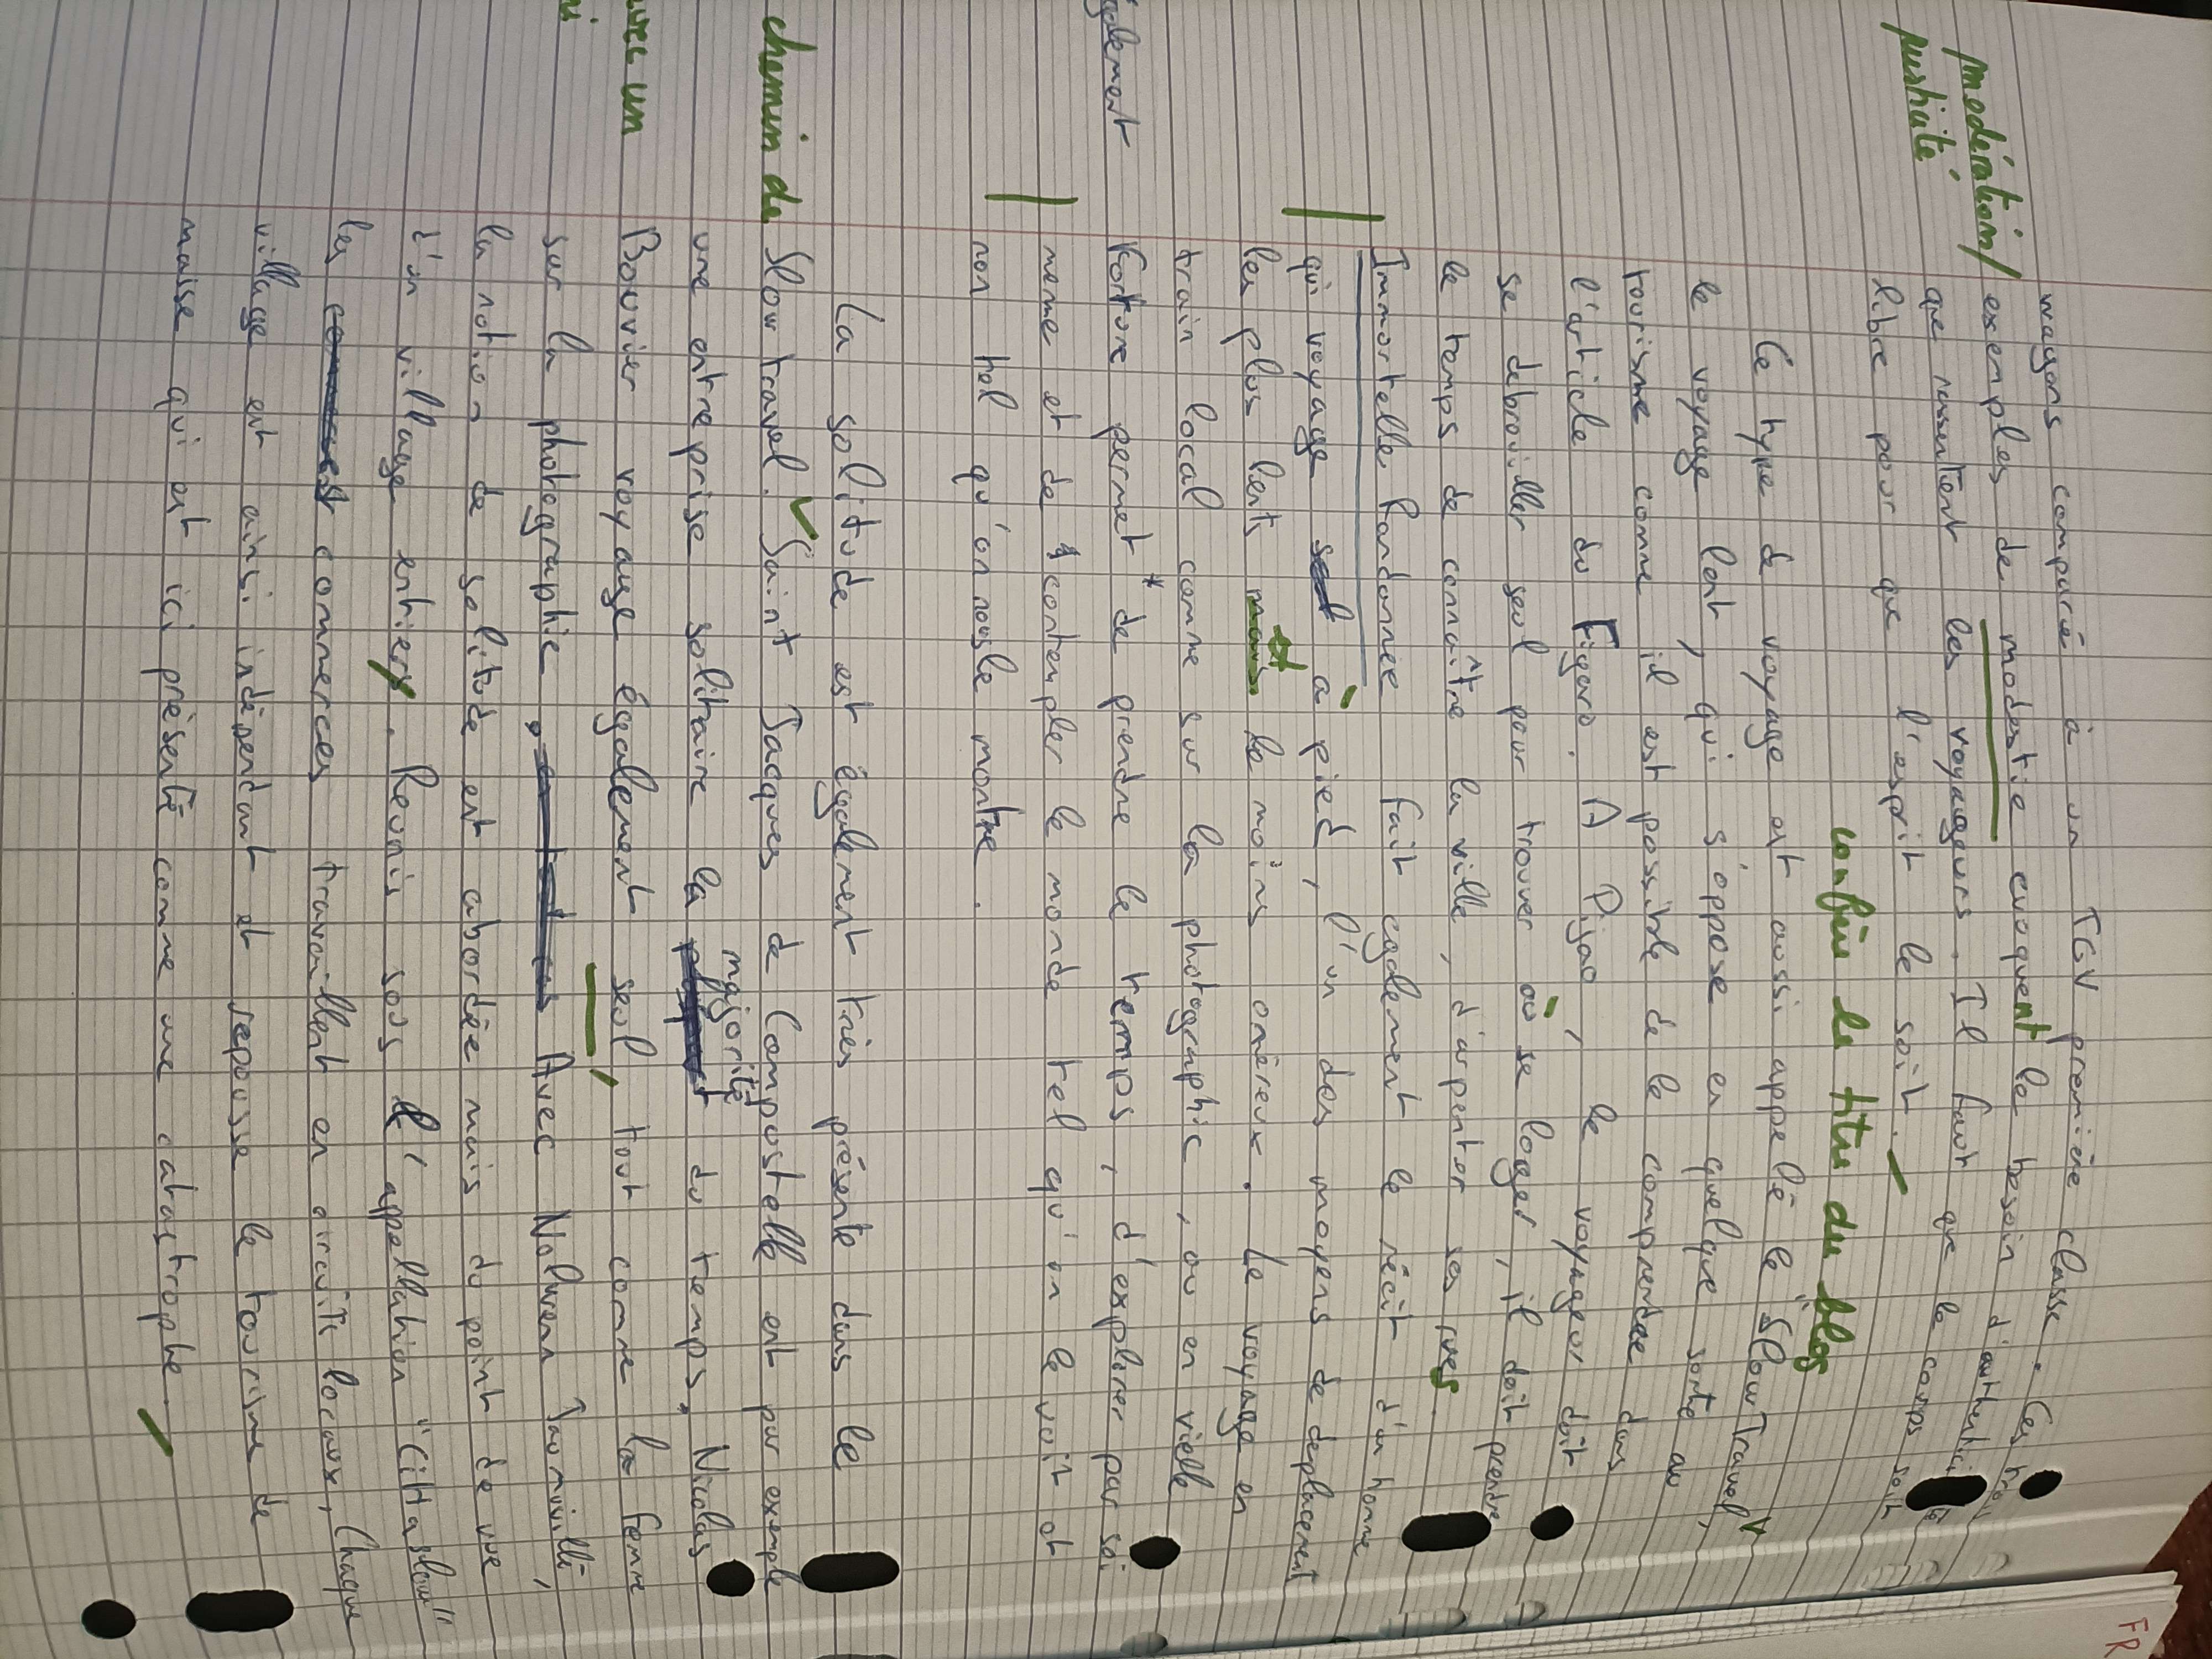 FR
wagons comparé à un TGV première classe. Ces trois
modération/ exemples de modestie evoquent le besoin d'authenticité
rusticité que ressentent les voyageurs. Il faut que le corps soit
libre pour que l'esprit le soit.
confère le titre du blog
Ce type de voyage est aussi appelé le "Slow Travel",
le voyage lent, qui s'oppose en quelque sorte au
tourisme comme il est possible de le comprendre dans
l'article du Figaro. A Pijao, le voyageur doit
se debrouiller seul pour trouver où se loger, il doit prendre
le temps de connaître la ville, d'arpenter ses rues.
Immortelle Randonnée fait egalement le récit d'un homme
qui voyage à pied, l'un des moyens de deplacement
et
les plus lents mais le moins onéreux. Le voyage en
train local comme sur la photographie, ou en vielle
également voiture permet* de prendre le temps, d'explorer par soi
meme et de contempler le monde tel qu'on le voit et
non tel qu'on nous le montre.
La solitude est également très présente dans le
chemin de Slow travel. Saint Jacques de Compostelle est par exemple
majorité
une entreprise solitaire la plupart du temps. Nicolas
avec un Bouvier voyage également seul, tout comme la femme
sur la photographie, en tout cas Avec Nolwenn
la notion de solitude est abordée mais du point de vue
d'un village entiers. Reunis sous l'appellation "Cittaslow"
les commerces travaillent en circuits locaux, Chaque
village est ainsi indépendant et repousse le tourisme de
masse qui est ici présenté comme une catastrophe.